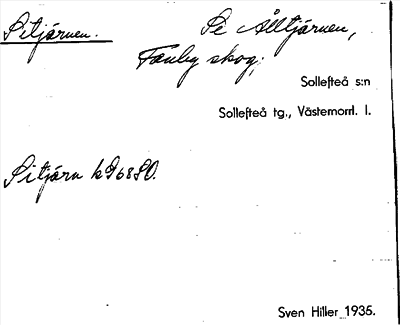 Sitjärnen. SeÅlltjärnen,
Tanby skog;
Sollefteå s:n
Sollefteå tg., Västernorrl. l.
Sitjärn
Sven Hiller 1935.